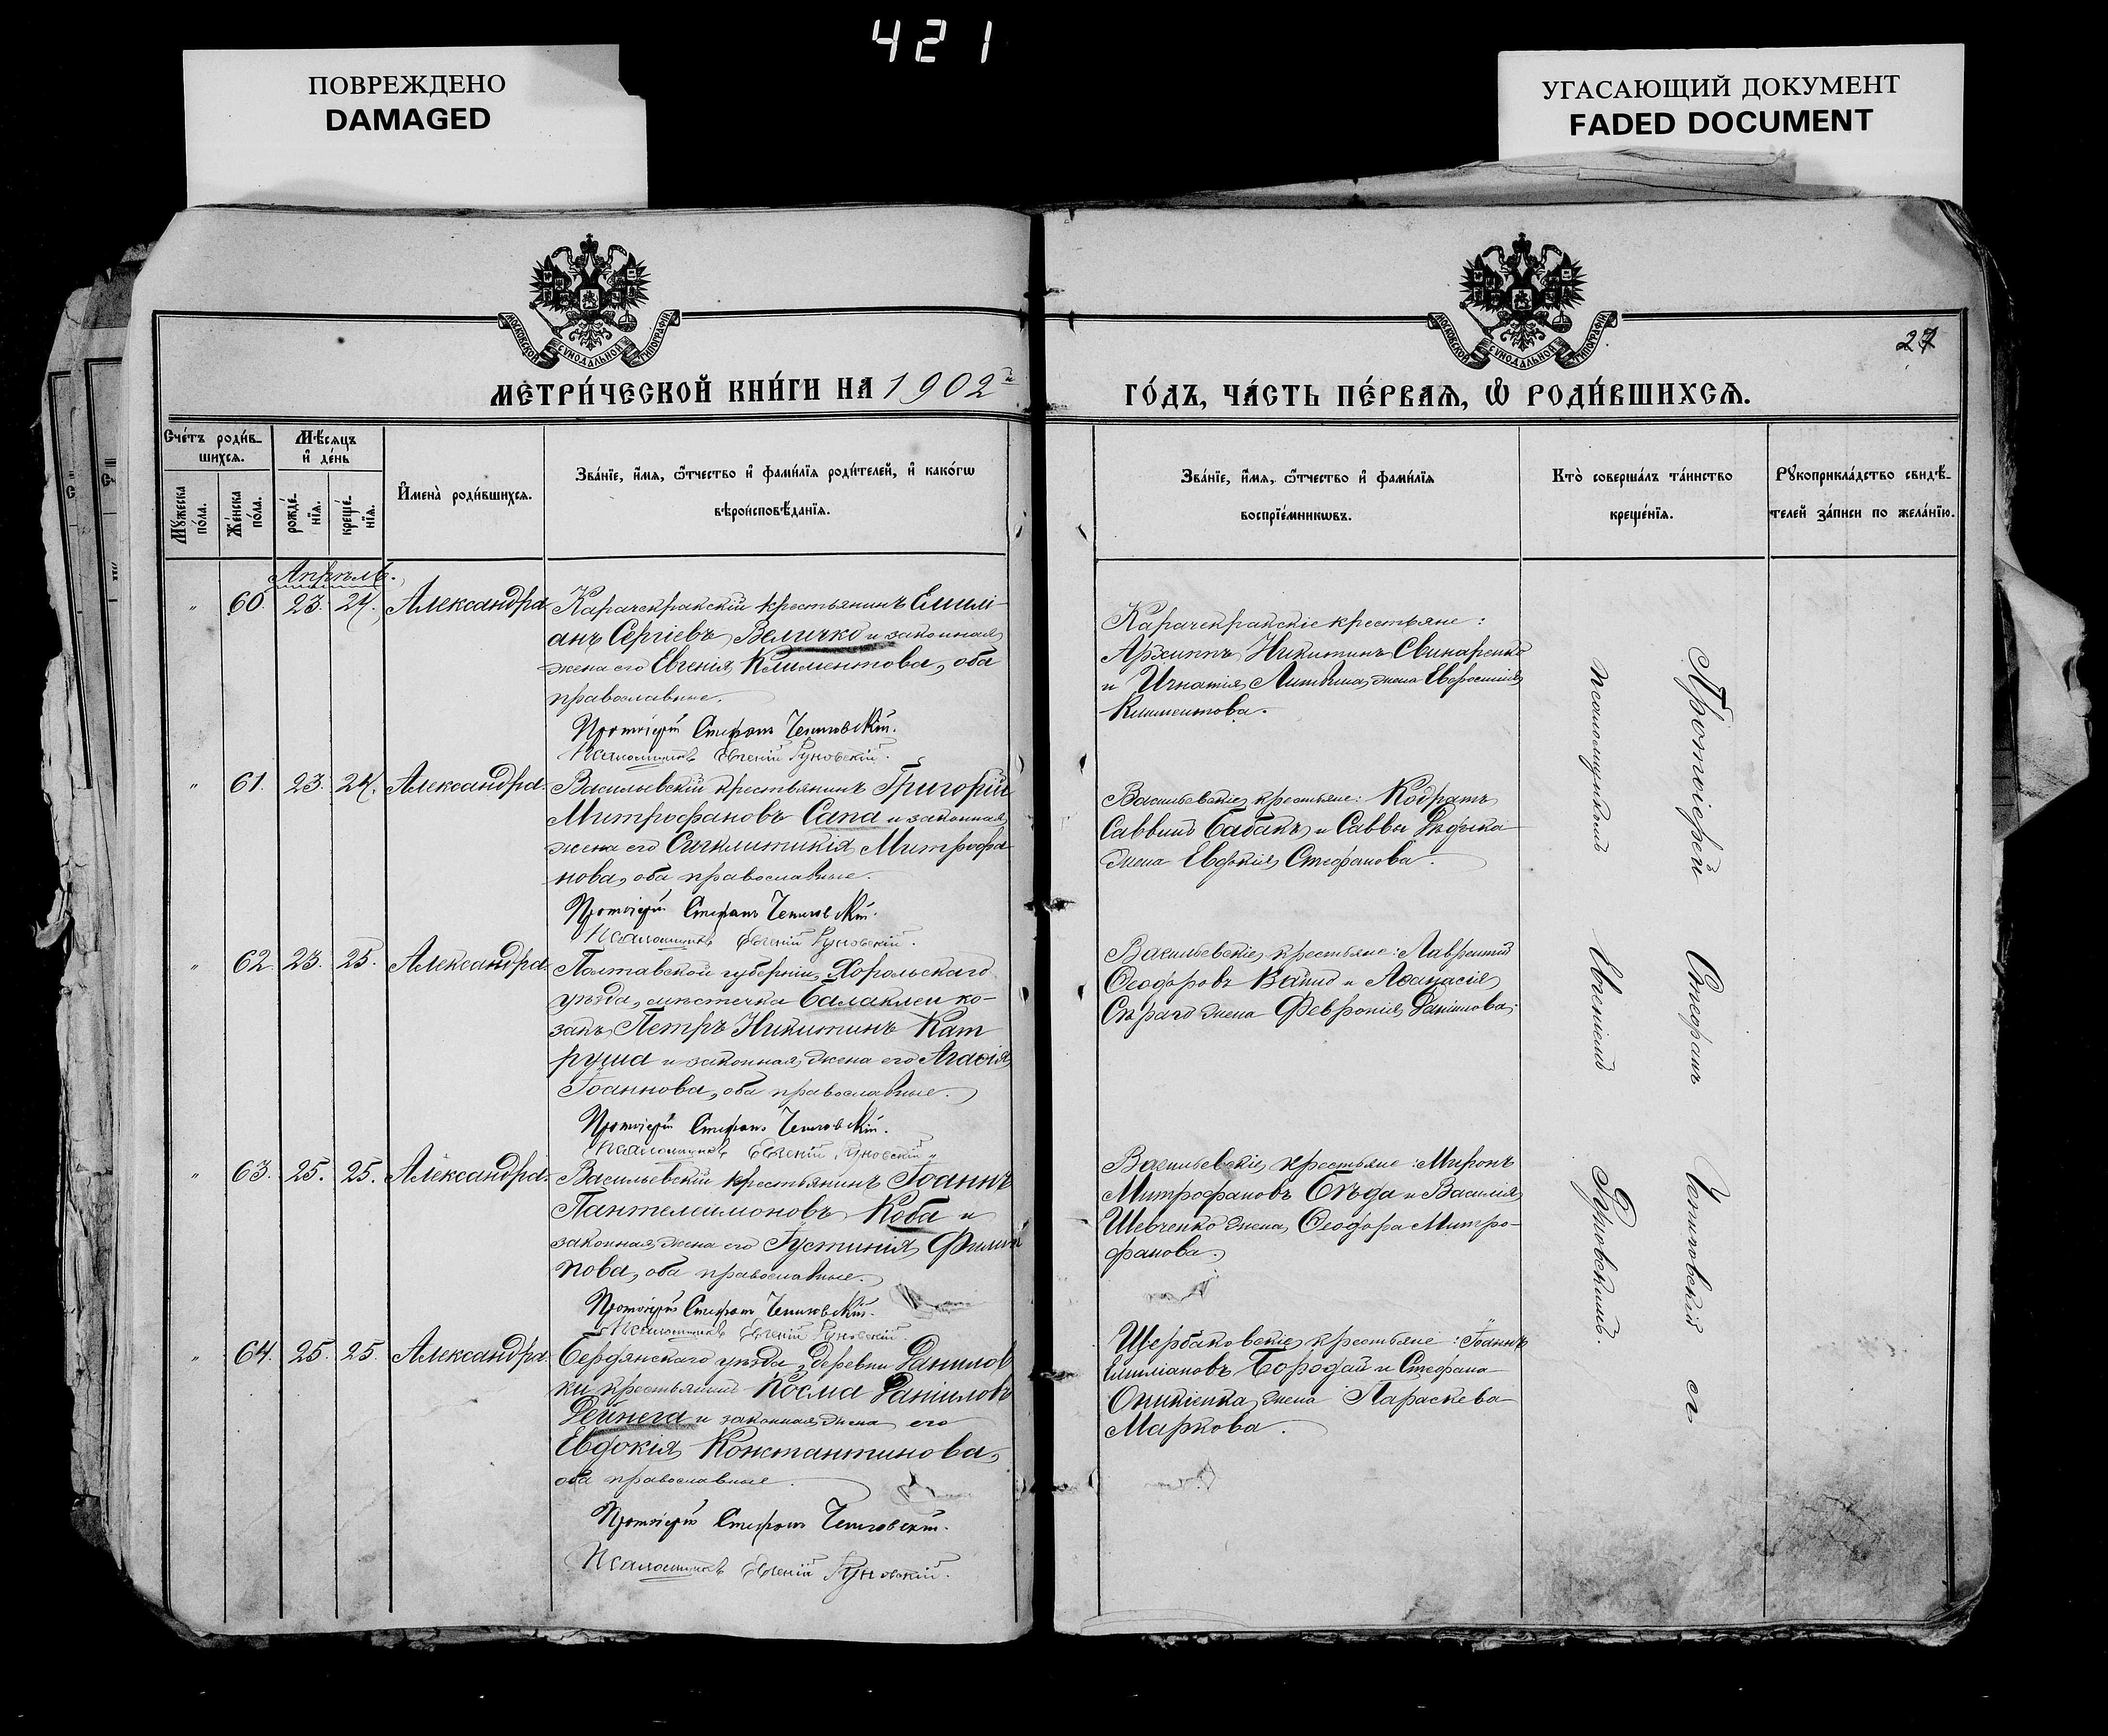 421
ПОВРЕЖДЕНО
DAMAGED
УГАСАЮЩИЙ ДОКУМЕНТ
FADED DOCUMENT
МОСКОВСКОЙ СѴНОДАЛЬНОЙ ТИПОГРАФІИ
МОСКОВСКОЙ СѴНОДАЛЬНОЙ ТИПОГРАФІИ
27
МЕТРИ́ЧЕСКОЙ КНИ́ГИ НА 1902й
ГО́ДЪ, ЧА́СТЬ ПЕ́РВАѦ, Ѡ РОДИ́ВШИХСѦ.
Сче́тъ роди́в-
шихсѧ.
Мѣ́сѧцъ
и҆ де́нь
Мꙋ́жеска
по́ла.
Же́нска
по́ла.
рожде́-
нїѧ.
креще́-
нїѧ.
И҆мена̀ роди́вшихсѧ.
Зва́нїе, и҆́мѧ, ѻ҆́тчество и҆ фами́лїѧ роди́телей, и҆ како́гѡ
вѣроисповѣ́данїѧ.
Зва́нїе, и҆́мѧ, ѻ҆́тчество и҆ фами́лїѧ
воспрїе́мникѡвъ.
Кто̀ соверша́лъ та́инство
креще́нїѧ.
Рꙋкоприкла́дство свидѣ́-
телей за́писи по жела́нїю.
Апрѣль.
" 60. 23. 24. Александра
Карачекракскій крестьянинъ Емилі-
анъ Сергіевъ Величко и законная
жена его Евгенія Климентова, оба
православные.
Протоіерей Стефанъ Чепиговскій.
Псаломщикъ Евгеній Руновскій.
Карачекракскіе крестьяне:
Архиппъ Никитинъ Свинаренко
и Игнатія Литвина жена Евфросинія
Климентова.
" 61. 23. 24. Александра.
Васильевскій крестьянинъ Григорій
Митрофановъ Сапа и законная
жена его Сигклитикія Митрофа-
нова, оба православные.
Протоіерей Стефанъ Чепиговскій.
Псаломщикъ Евгеній Руновскій.
Васильевскіе крестьяне: Кодратъ
Саввинъ Бабакъ и Саввы
жена Евдокія Стефанова.
" 62. 23. 25. Александра.
Полтавской губерніи, Хорольскаго
уѣзда, мѣстечка Балаклеи ко-
закъ Петръ Никитинъ Кат
руша и законная жена его Агафія
Іоаннова, оба православные.
Протоіерей Стефанъ Чепиговскій.
Псаломщикъ Евгеній Руновскій.
Васильевскіе крестьяне: Лаврентій
Ѳеодоровъ и Аѳанасія
жена Февронія Даніилова.
" 63. 25. 25. Александра.
Васильевскій крестьянинъ Іоаннъ
Пантелеимоновъ Коба и
законная жена его Іустинія Филип
пова, оба православные.
Протоіерей Стефанъ Чепиговскій.
Псаломщикъ Евгеній Руновскій.
Васильевскіе крестьяне: Миронъ
Митрофановъ Бѣда и Василія
Шевченко жена Ѳеодора Митро-
фанова.
" 64. 25. 25. Александра
Бердянскаго уѣзда, деревни Данилов
ки крестьянинъ Косма Даніиловъ
Дейнега и законная жена его
Евдокія Константинова,
оба православные.
Протоіерей Стефанъ Чепиговскій.
Псаломщикъ Евгеній Руновскій.
Щербаковскіе крестьяне: Іоаннъ
Емиліановъ Бородай и Стефана
жена Параскева
Маркова.
Протоіерей Стефанъ Чепиговскій съ
псаломщикомъ Евгеніемъ Руновскимъ.